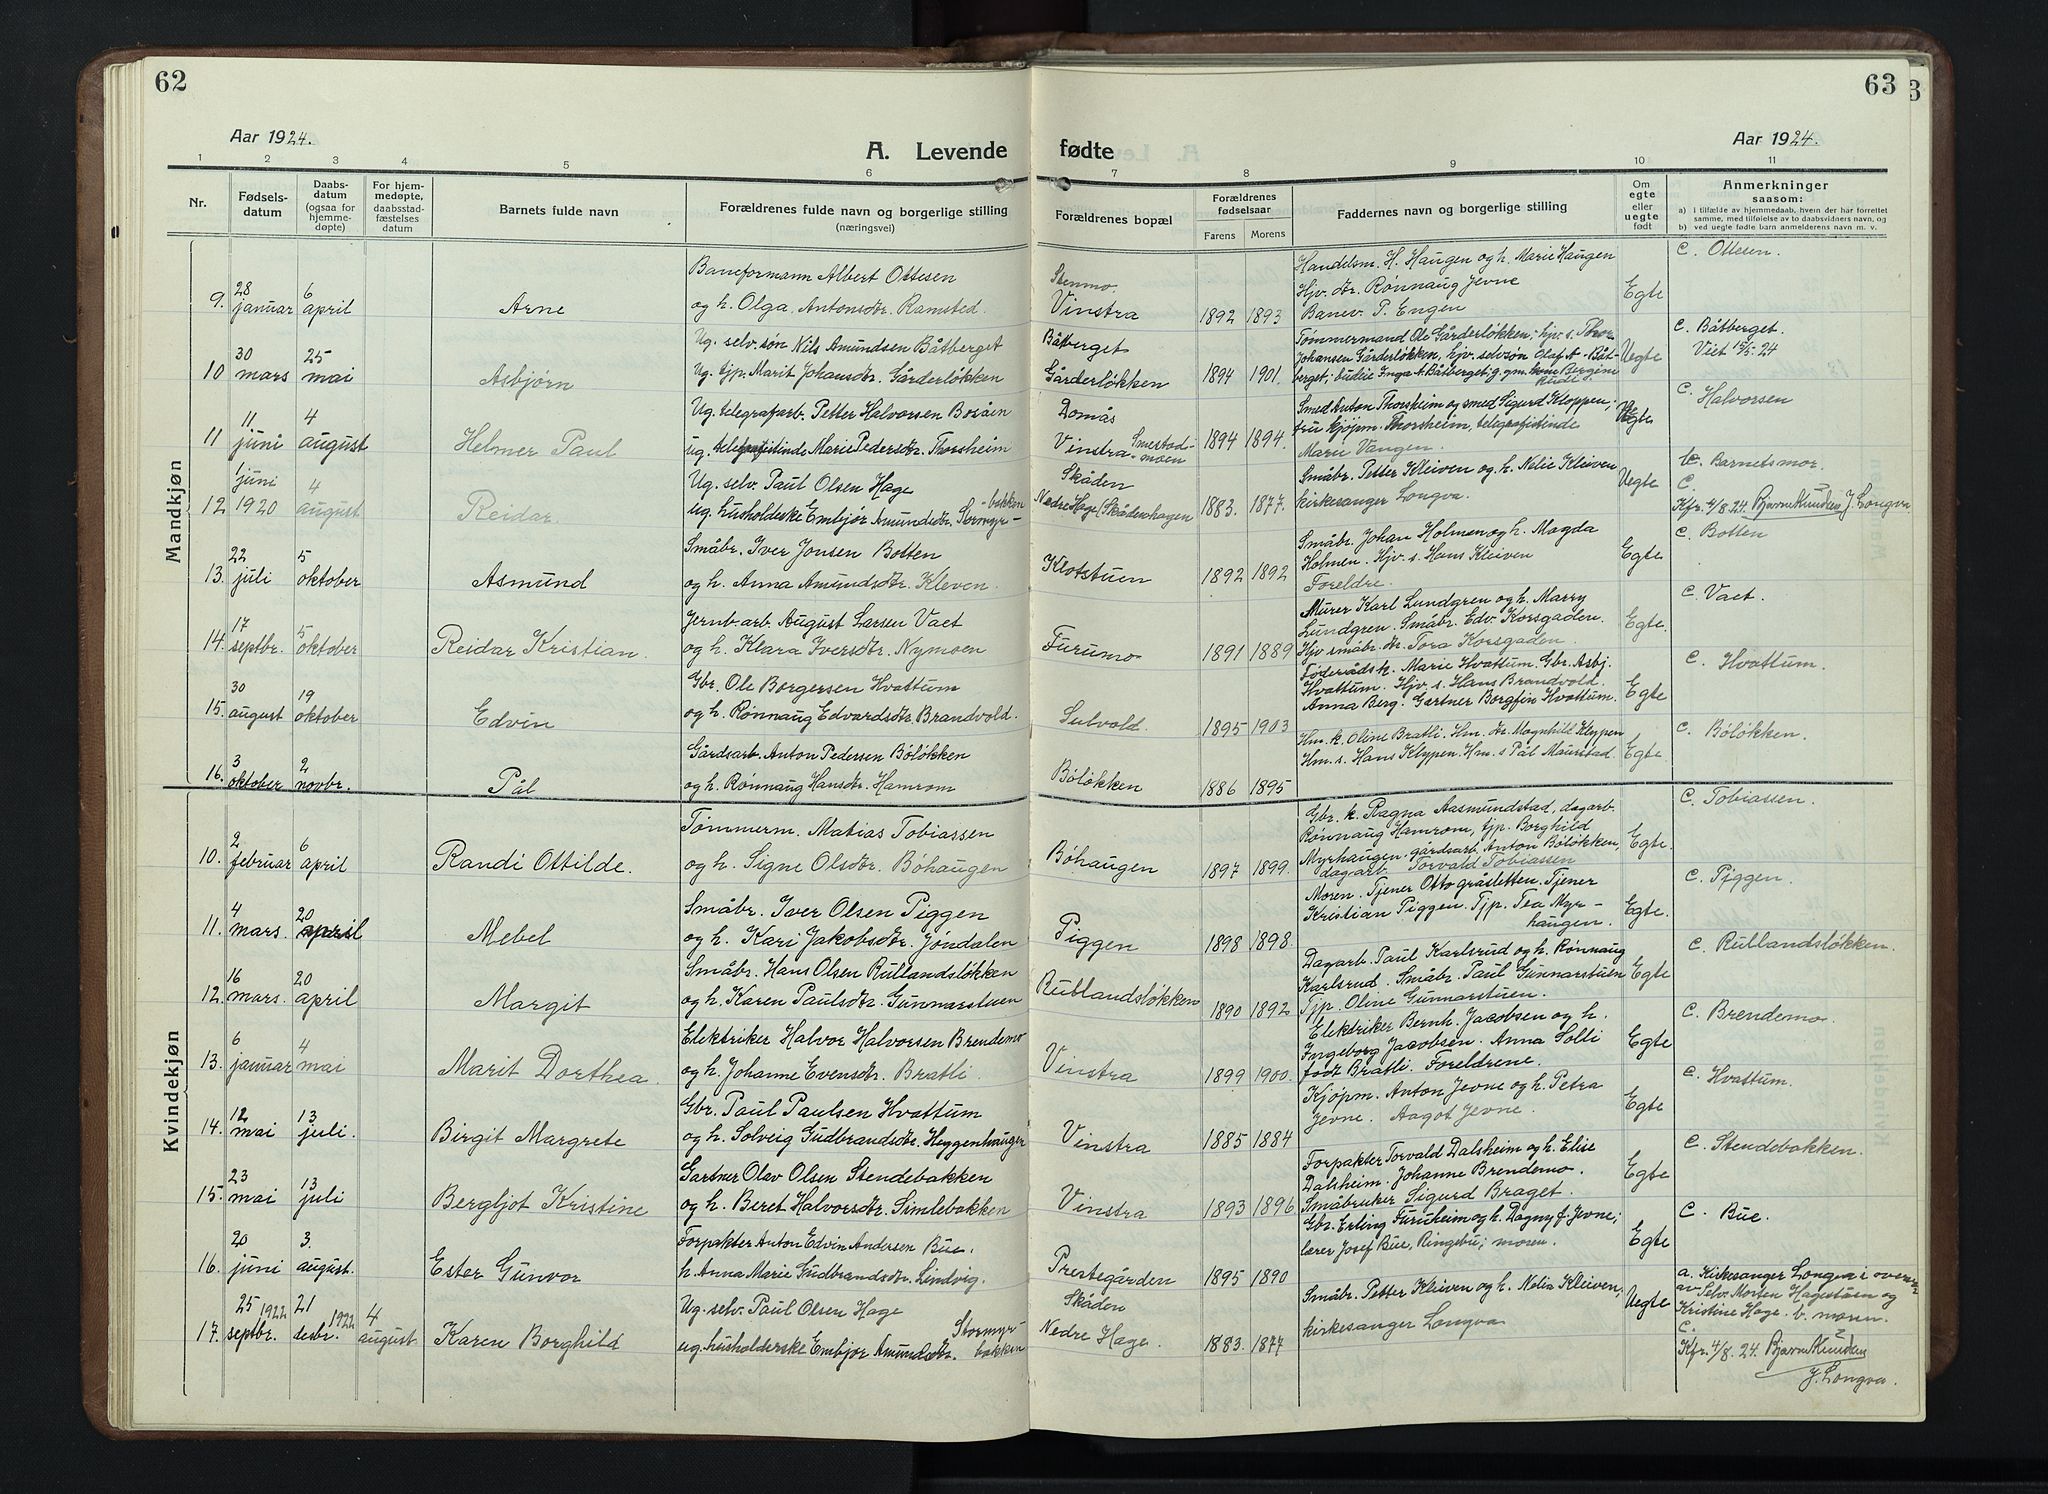 62
Aar 1924.
A. Levende
1 2 3 4 5 6
Nr.
Fødsels-
datum
Daabs-
datum
(ogsaa for
hjemme-
døpte)
For hjem-
medøpte,
daabsstad-
fæstelses
datum
Barnets fulde navn
Forældrenes fulde navn og borgerlige stilling
(næringsvei)
Mandkjøn
28 6 Baneformann Albert Ottesen
9. januar april Arne og h. Olga Antonsdtr. Ramsted.
30 25 Ug. selv. søn Nils Amundsen Båtberget
10 mars mai Asbjørn Ug. tjp. Marit Johansdtr. Gårderløkken
11. 4 Ug. telegrafarb. Petter Halvorsen Bosåen
11 juni august Helmer Paul ug. telegrafistinde Marie Pedersdtr. Thorsheim
1 juni 4 Ug. selv. Paul Olsen Hage
12 1920 august Reidar ug. husholderske Embjør Amundsdtr. Stormyr-
bakken
22 5 Småbr. Iver Jonsen Botten
13. juli oktober Asmund og h. Anna Amundsdtr. Kleven.
17 5 Jernb. arb. August Larsen Vaet
14. septbr. oktober Reidar Kristian. og h. Klara Iversdtr. Nymoen
30 19 Gbr. Ole Borgersen Hvattum
15. august oktober Edvin og h. Rønnaug Edvardsdtr. Brandvold.
3 2 Gårdsarb. Anton Pedersen Bøløkken
16. oktober novbr. Pål og h. Rønnaug Hansdtr. Hamrom
Kvindekjøn
2 6 Tømmerm. Matias Tobiassen
10. februar april Randi Ottilde. og h. Signe Olsdtr. Bøhaugen
4 20 Småbr. Iver Olsen Piggen
11. mars. april Mebel og h. Kari Jakobsdtr. Jøndalen
16 20 Småbr. Hans Olsen Rullandsløkken
12. mars. april Margit og h. Karen Paulsdtr. Gunnarstuen
6 4 Elektriker Halvor Halvorsen Brendemo
13. januar mai Marit Dorthea. og h. Johanne Evensdtr. Bratli.
12 13 Gbr. Paul Paulsen Hvattum
14. mai juli. Birgit Margrete og h. Solveig Gudbrandsdtr. Heggenhaugen
23 13 Gartner Olav Olsen Stendebakken
15. mai juli Bergljot Kristine og h. Beret Halvorsdtr. Simlebakken
20 3. Forpakter Anton Edvin Andersen Bue.
16. juni august. Ester Gunvor h. Anna Marie Gudbrandsdtr. Lindvig.
25 1922 21 1922 4 Ug. selv. Paul Olsen Hage
17. septbr. desbr. august Karen Borghild ug. husholderske Embjør Amundsdtr. Stormyr-
bakken
63
fødte
Aar 1924.
7 8 9 10 11
Forældrenes bopæl
Forældrenes
fødselsaar
Farens Morens
Faddernes navn og borgerlige stilling
Om
egte
eller
uegte
født
Anmerkninger
saasom:
a) i tilfælde av hjemmedaab, hvem der har forrettet
samme, med tilføielse av to daabsvidners navn, og
b) ved uegte fødte barn anmelderens navn m. v.
Stenmo.
Vinstra 1892 1893
Handelsm. H. Haugen og h. Marie Haugen
Hjv. dtr. Rønnaug Jevne
Banev. P. Engen
Egte
C. Ottesen.
Båtberget
Gårderløkken 1894 1901.
Tømmermand Ole Gårderløkken; hjv. s. Thor
Johansen Gårderløkken, hjv. selvsøn Olaf A. Båt-
berget; budeie Inga A. Båtberget; g.
Uegte
C. Båtberget.
Viet 15/5-24
Domås
Vinstra Smestad-
moen 1894 1894.
Smed Anton Thorsheim og smed Sigurd Kloppen;
fru kjøpm. Thorsheim, telegrafistinde
Marie Vangen.
Uegte
C. Halvorsen
Skåden
Nedre Hage (Skådenhagen 1883. 1877.
Småbr. Petter Kleiven og h. Nelie Kleiven
kirkesanger Longva.
Uegte
b. Barnets mor.
C.
Kfr. 4/8. 24. J. Longva.
Klotstuen 1892 1892
Småbr. Johan Holmen og h. Magda
Holmen. Hjv. s. Hans Kleiven
Foreldre.
Egte
C. Botten
Furumo 1891 1889
Murer Karl Lundgren og h. Marry
Lundgren. Småbr. Edv. Korsgaden.
Hjv småbr. dtr. Tora Korsgaden.
Egte.
C. Vaet.
Sulvold. 1895 1903
Føderåds k. Marie Hvattum. Gbr. Asbj.
Hvattum. Hjv. s. Hans Brandvold.
Anna Berg. Gartner Borgfin Hvattum.
Egte
C. Hvattum.
Bøløkken 1886 1895
Hm. k. Oline Bratli. Hm. dr. Magnhild Klyppen
Hm. s. Hans Klyppen. Hm. s Pål Maurstad.
Egte.
C. Bøløkken.
Bøhaugen 1897 1899.
Gbr. k. Ragna Aasmundstad, dagarb.
Rønnaug Hamrom, tjp. Borghild
Myrhaugen. gårdsarb. Anton Bøløkken,
dagarb. Torvald Tobiassen
Egte.
C. Tobiassen.
Piggen 1898 1898.
Moren. Tjener Otto gråsletten. Tjener
Kristian Piggen. Tjp. Tea Myr-
haugen.
Egte.
C. Piggen.
Rullandsløkken 1890 1892
Dagarb. Paul Karlsrud og h. Rønnaug
Karlsrud. Småbr. Paul Gunnarstuen
Tjp. Oline Gunnarstuen.
Egte
C. Rullandsløkken.
Vinstra 1899 1900.
Elektriker Bernh. Jacobsen og h.
Ingeborg Jacobsen. Anna Solli
født Bratli. Foreldrene.
Egte
C. Brendemo.
Vinstra 1885 1884
Kjøpm. Anton Jevne og h. Petra
Jevne. Aagot Jevne.
Egte
C. Hvattum.
Vinstra 1893 1896
Forpakter Torvald Dalsheim og h. Elise
Dalsheim. Johanne Brendemo.
Småbruker Sigurd Braget.
Egte
C. Stendebakken.
Prestegården 1895 1890
Gbr. Erling Furuheim og h. Dagny f. Jevne;
lærer Josef Bue, Ringebu; moren.
Egte
C. Bue.
Skåden
Nedre Hage. 1883. 1877
Småbr. Petter Kleiven og h. Nelia Kleiven,
kirkesanger Longva
Uegte
a. Kirkesanger Longva i overvær
av Selv. Morten Hagestuen og
Kristine Hage. b. moren.
C.
Kfr. 4/8. 24.
J. Longva.